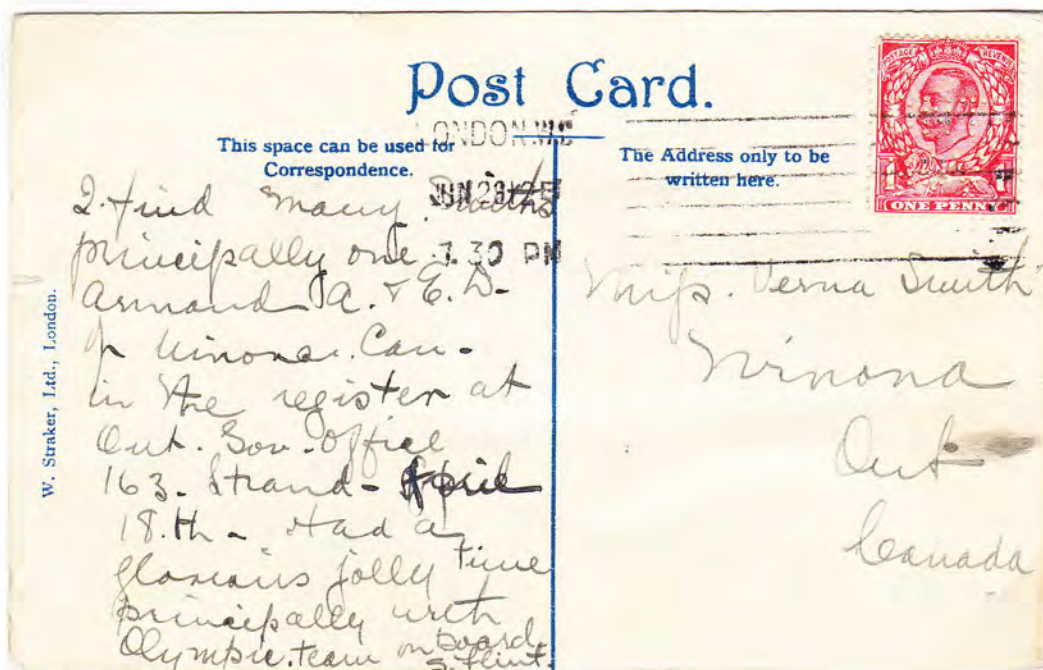 Post Card.
LONDON.W.C
This space can be used for
Correspondence.
The Address only to be
written here.
POSTAGE REVENUE
1 1
ONE PENNY
JUN 29 12
7.30 PM
W. Straker, Ltd., London.
I find Many Smiths
principally one
Armand A. & E. D.
of Winona. Can.
in the register at
Ont. Gov. Office
163. Strand - April
18.th - Had a
glorious jolly time
principally with
Olympic team on board
S. Flint.
Miss. Verna Smith
Winona
Ont
Canada